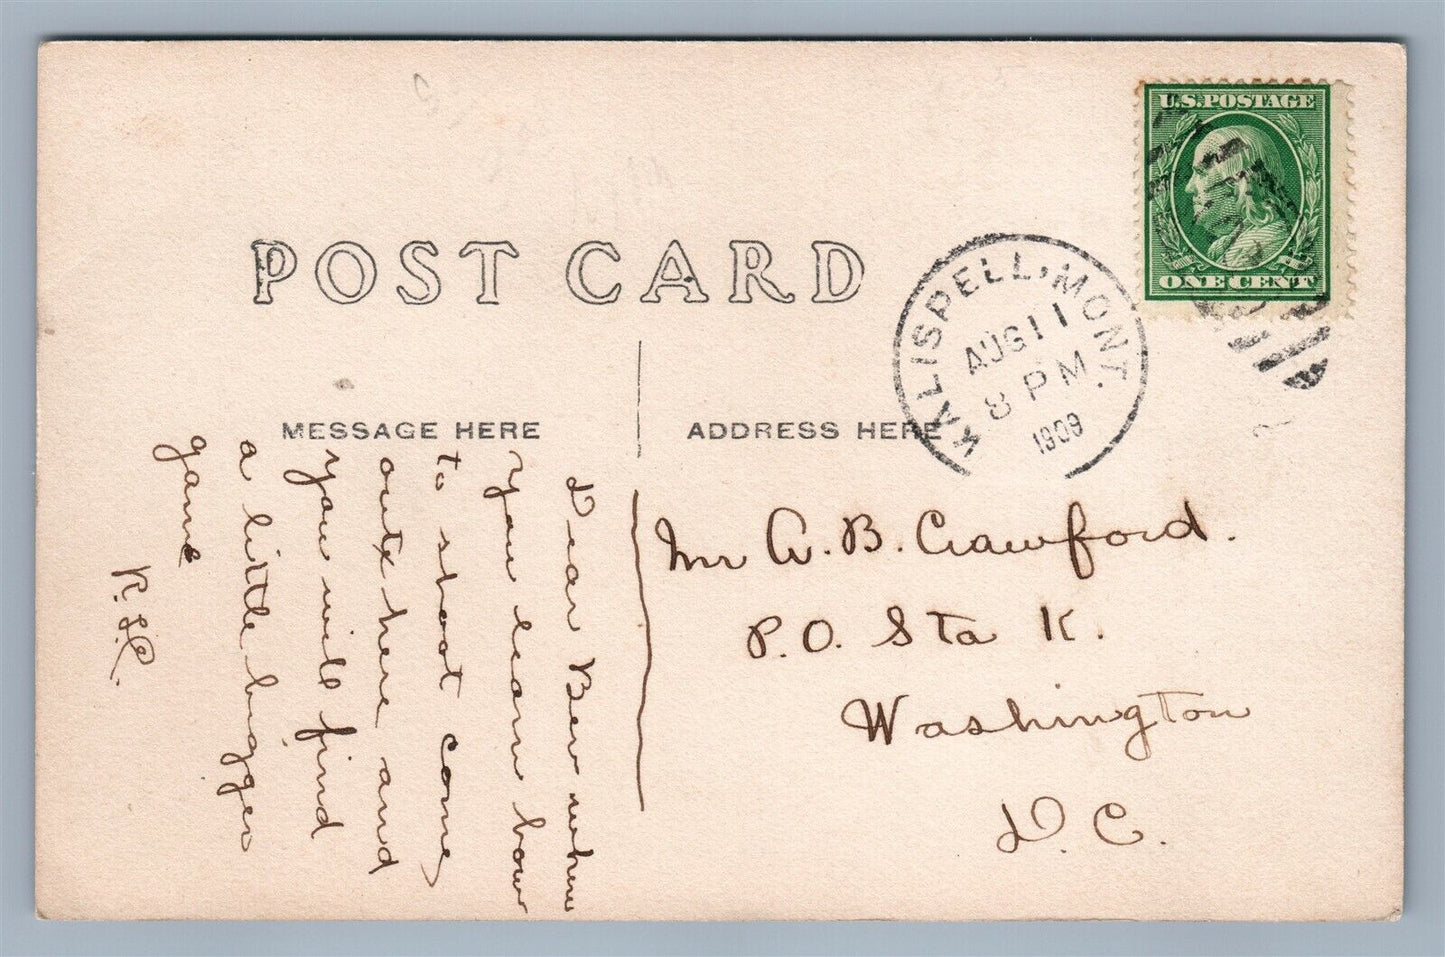 U.S. POSTAGE
ONE CENT
POST CARD
KALISPELL, MONT.
AUG 11
8 PM
1909
MESSAGE HERE
ADDRESS HERE
Dear Ben when
you learn how
to shoot come
out here and
you will find
a little bigger
game
Mr A. B. Crawford.
P.O. Sta K.
Washington
D. C.